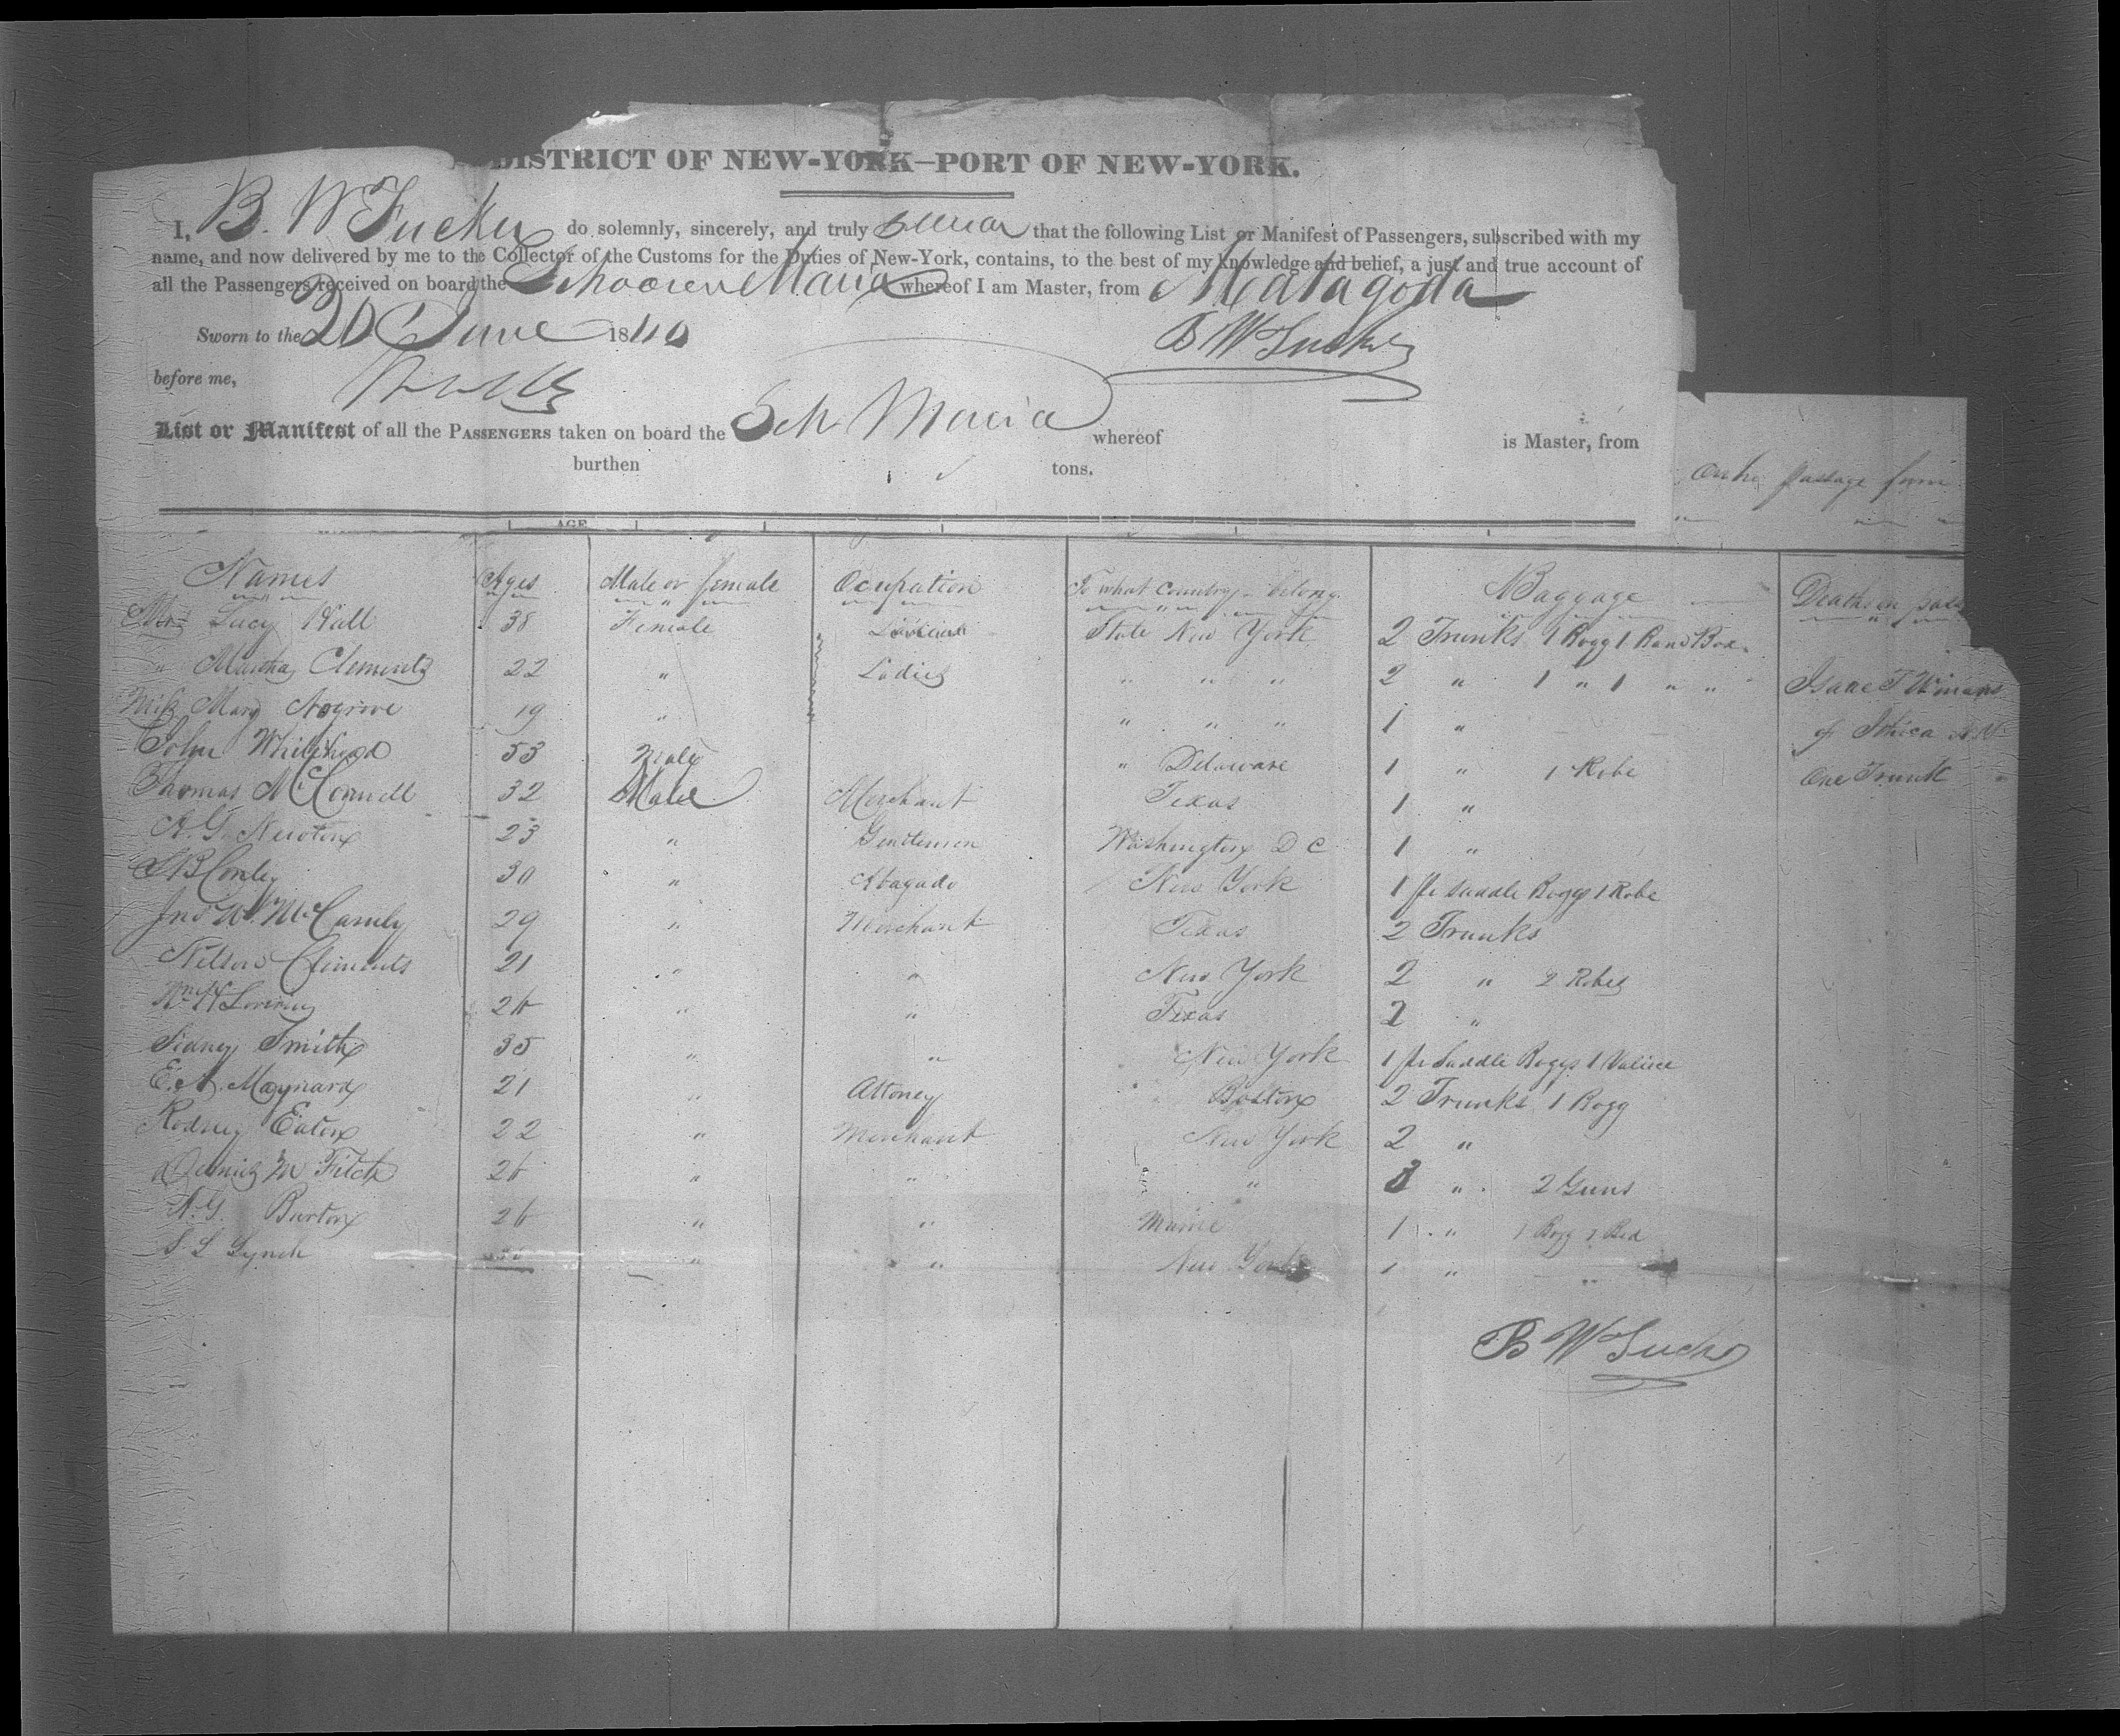 DISTRICT OF NEW-YORK—PORT OF NEW-YORK.
I, B. W Tucker do solemnly, sincerely, and truly swear that the following List or Manifest of Passengers, subscribed with my
name, and now delivered by me to the Collector of the Customs for the Duties of New-York, contains, to the best of my knowledge and belief, a just and true account of
all the Passengers received on board the Schooner Maria whereof I am Master, from Matagorda
Sworn to the 20 June 1840 B W Tucker
before me,
List or Manifest of all the PASSENGERS taken on board the Sch Maria whereof is Master, from
burthen tons.
passage from
AGE
Names Ages Male or female Ocupation To what Country belong Baggage Deaths on
Mrs Lucy Hall 38 Female State New York 2 Trunks 1 Bagg 1 Band Box
" Martha Clements 22 " Ladies " " " 2 " 1 " 1 " " Isaac T Winans
Miss Mary 19 " " " " 1 " of Ithica N.Y.
John Whitehead 53 Male " Delaware 1 " 1 Robe One Trunk
Thomas McConnell 32 Male Merchant Texas 1 "
A. G. Newton 23 " Gentlemen Washington D C 1 "
S B Conley 30 " Abagado New York 1 pr Saddle Baggs 1 Robe
Jno W. McCamly 29 " Merchant Texas 2 Trunks
Nelson Clements 21 " " New York 2 " 2 Robes
Wm H Loring 26 " " Texas 2 "
Sidney Smith 35 " " New York 1 pr Saddle Baggs 1 Valice
E. A. Maynard 21 " Attoney Boston 2 Trunks 1 Bagg
Rodney Eaton 22 " Merchant New York 2 "
M Fitch 26 " " " " 2 Guns
A. G. Burton 26 " " Maine 1 " 1 Bagg 1 Bed
S. L Lynch " " New York 1 " "
B W Tucker